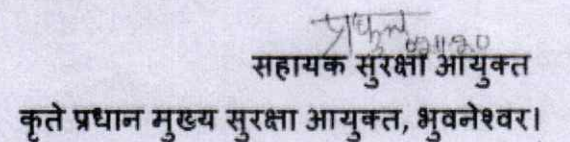 सहायक सुरक्षा आयुक्त
कृते प्रधान मुख्य सुरक्षा आयुक्त, भुवनेश्वर।